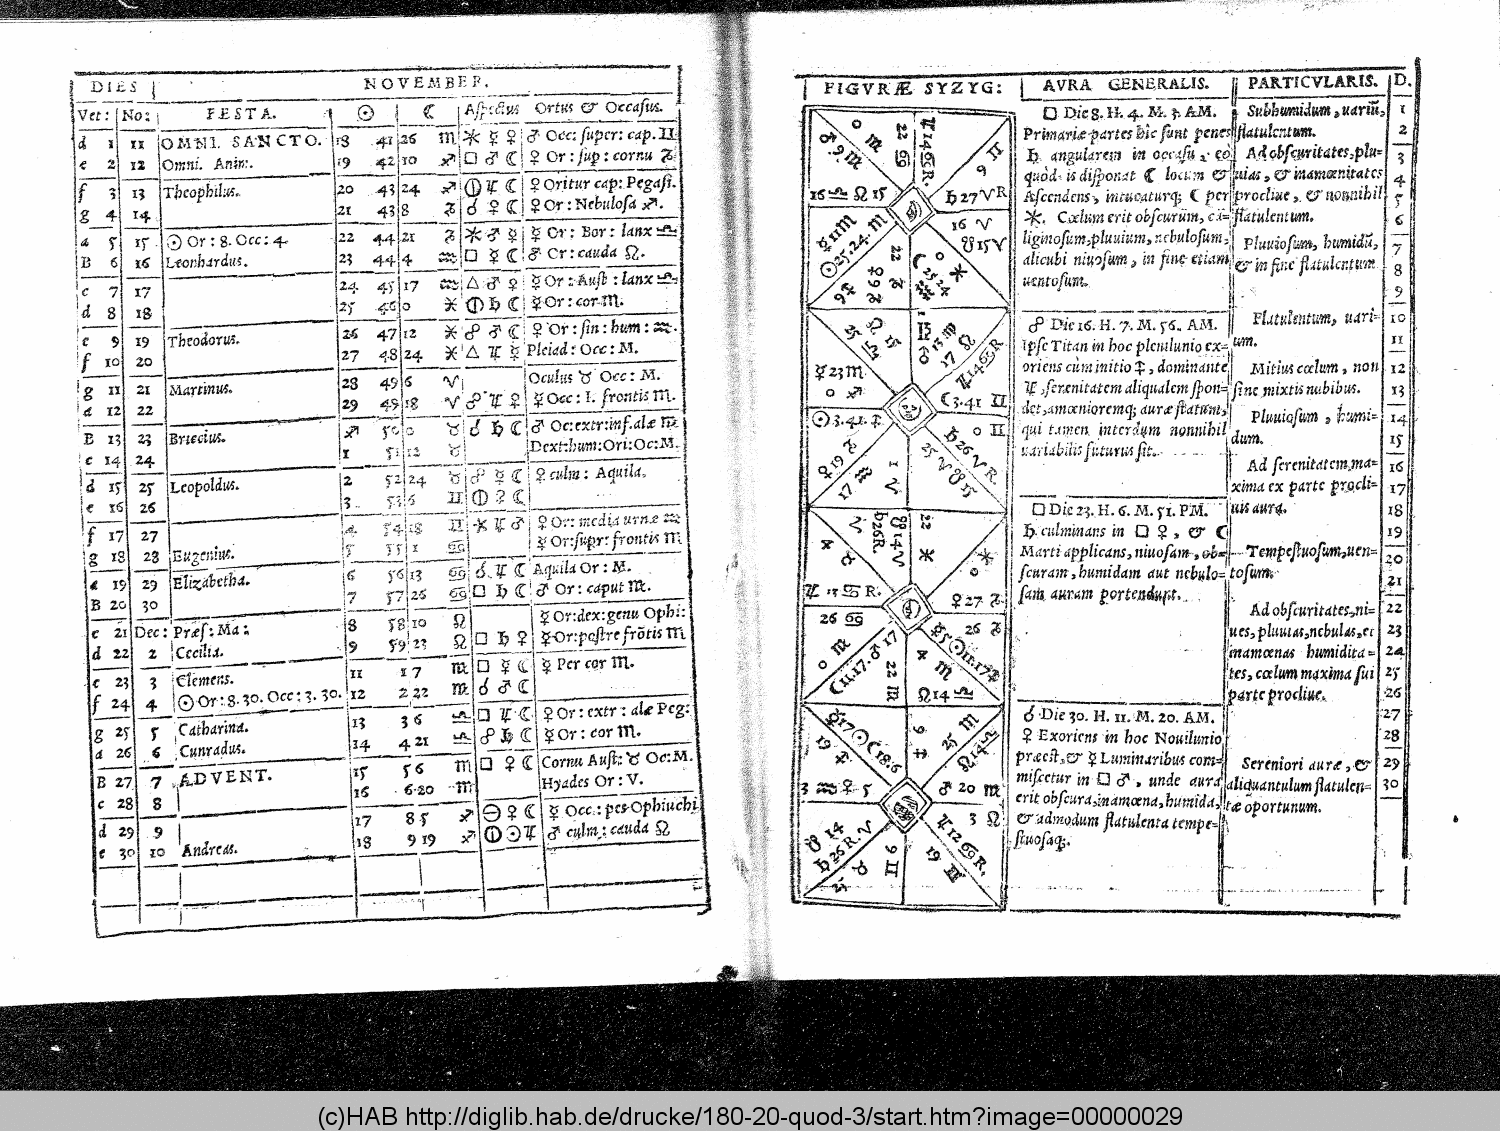 DIES | NOVEMBER.
Vet: | No: | FESTA. | ☉ | ☾ | Aſpectus | Ortus & Occaſus.
d 1 11 OMNI. SANCTO. 18 41 26 ♏ ⚹ ☿ ♀ ♂ Occ: ſuper: cap. ♊
e 2 12 Omni. Anim: 19 42 10 ♐ □ ♂ ☾ ♀ Or: ſup: cornu ♑
f 3 13 Theophilus. 20 43 24 ♐ ♃ ☾ ♀ Oritur cap: Pegaſi.
g 4 14 21 43 8 ♑ ☌ ♀ ☾ ♀ Or: Nebuloſa ♐.
a 5 15 ☉ Or: 8. Occ: 4. 22 44 21 ♑ ⚹ ♂ ☿ ☿ Or: Bor: lanx ♎
B 6 16 Leonhardus. 23 44 4 ♒ □ ☿ ☾ ♂ Or: cauda ♌.
c 7 17 24 45 17 ♒ △ ♂ ♀ ☿ Or: Auſt: lanx ♎
d 8 18 25 46 0 ♓ ♄ ☾ ☿ Or: cor ♏.
e 9 19 Theodorus. 26 47 12 ♓ ☍ ♂ ☾ ♀ Or: ſin: hum: ♒.
f 10 20 27 48 24 ♓ △ ♃ ☿ Pleiad: Occ: M.
g 11 21 Martinus. 28 49 6 ♈ Oculus ♉ Occ: M.
a 12 22 29 49 18 ♈ ☍ ♃ ♀ ☿ Occ: 1. frontis ♏.
B 13 23 Briccius. ♐ 50 0 ♉ ☌ ♄ ☾ ♂ Oc: extr: inf. alæ ♍
c 14 24 1 51 12 ♉ Dext: hum: Ori: Oc: M.
d 15 25 Leopoldus. 2 52 24 ♉ ☍ ☿ ☾ ♀ culm: Aquila.
e 16 26 3 53 6 ♊ ☾
f 17 27 4 54 18 ♊ ⚹ ♃ ♂ ♀ Or: media urnæ ♒
g 18 28 Eugenius. 5 55 1 ♋ ☿ Or: ſupr: frontis ♏
a 19 29 Elizabetha. 6 56 13 ♋ ☌ ♃ ☾ Aquila Or: M.
B 20 30 7 57 26 ♋ □ ♄ ☾ ♂ Or: caput ♏.
c 21 Dec: Præſ: Ma: 8 58 10 ♌ ☿ Or: dex: genu Ophi:
d 22 2 Cecilia. 9 59 23 ♌ □ ♄ ♀ ☿ Or: poſtre frõtis ♏
e 23 3 Clemens. 11 1 7 ♍ □ ☿ ☾ ☿ Per cor ♏.
f 24 4 ☉ Or: 8. 30. Occ: 3. 30. 12 2 22 ♍ ☌ ♂ ☾
g 25 5 Catharina. 13 3 6 ♎ □ ♃ ☾ ♀ Or: extr: alæ Peg:
a 26 6 Cunradus. 14 4 21 ♎ ☍ ♄ ☾ ☿ Or: cor ♏.
B 27 7 ADVENT. 15 5 6 ♏ □ ♀ ☾ Cornu Auſt: ♉ Oc: M.
c 28 8 16 6 20 ♏ Hyades Or: V.
d 29 9 17 8 5 ♐ ♀ ☾ ☿ Occ: pes Ophiuchi
e 30 10 Andreas. 18 9 19 ♐ ☉ ♃ ♂ culm: cauda ♌
FIGVRÆ SYZYG:
♂ 9 ♏
0 ♏
22 ♋
♃ 14 ♋ R.
9 ♊
16 ♎ ♌ 15
♄ 27 ♈ R
☿ 11 ♏
☉ 25. 24. ♏
16 ♈
☋ 15 ♈
22 ♑
♀ 9 ♑
☾ 25 24 ♒
0 ⚹
25 ♎
♌ 15
♂ 13 ♍
17 ♌
♃ 14 ♋ R.
☿ 23 ♏
0 ♐
☾ 3. 41 ♊
☉ 3. 41. ♐
0 ♊
♄ 26 ♈ R.
♀ 19 ♑
17 ♒
1 ♈
25 ♈ ☋ 15
♄ 26 R.
☋ 14 ♈
22 ♓
4 ♉
♃ 13 ♋ R.
♀ 27 ♑
26 ♋
26 ♑
☿ 5 ☉ 11. 17 ♐
0 ♏
☾ 11. 17. ♂ 17
22 ♏
4 ♏
♌ 14 ♎
☿ 17 ☉ ☾ 18. 6
19 ♐
9 ♐
25 ♏
♌ 14 ♎
3 ♒ ♀ 5
♂ 20 ♏
3 ♌
☋ 14
♄ 26 R. ♈
25 ♉
9 ♊
♃ 12 ♋ R.
19 ♊
AVRA GENERALIS.
□ Die 8. H. 4. M. 3. AM.
Primariæ partes hic ſunt penes
♄ angularem in occaſu, eo
quod is diſponat ☾ locum &
Aſcendens, intueaturq; ☾ per
⚹. Cœlum erit obſcurum, ca-
liginoſum, pluuium, nebuloſum,
alicubi niuoſum, in fine etiam
uentoſum.
☍ Die 16. H. 7. M. 56. AM.
Ipſe Titan in hoc plenilunio ex-
oriens cùm initio ♐, dominante
♃, ſerenitatem aliqualem ſpon-
det, amœnioremq; auræ ſtatum,
qui tamen interdum nonnihil
variabilis futurus ſit.
□ Die 23. H. 6. M. 51. PM.
♄ culminans in □ ♀, & ☾
Marti applicans, niuoſam, ob-
ſcuram, humidam aut nebulo-
ſam auram portendunt.
☌ Die 30. H. 11. M. 20. AM.
♀ Exoriens in hoc Nouilunio
præeſt, & ☿ Luminaribus com-
miſcetur in □ ♂, unde aura
erit obſcura, inamœna, humida,
& admodum flatulenta tempe-
ſtuoſaq;.
PARTICVLARIS. | D.
Subhumidum, uariũ,
flatulentum.
Ad obſcuritates, plu-
uias, & inamœnitates
procliue, & nonnihil
flatulentum.
Pluuioſum, humidũ,
& in fine flatulentum
Flatulentum, uari-
um.
Mitius cœlum, non
ſine mixtis nubibus.
Pluuioſum, humi-
dum.
Ad ſerenitatem, ma-
xima ex parte procli-
uis aura.
Tempeſtuoſum, uen-
toſum.
Ad obſcuritates, ni-
ues, pluuias, nebulas, et
inamœnas humidita-
tes, cœlum maxima ſui
parte procliue.
Sereniori auræ, &
aliquantulum flatulen-
tæ oportunum.
1
2
3
4
5
6
7
8
9
10
11
12
13
14
15
16
17
18
19
20
21
22
23
24
25
26
27
28
29
30
(c)HAB http://diglib.hab.de/drucke/180-20-quod-3/start.htm?image=00000029